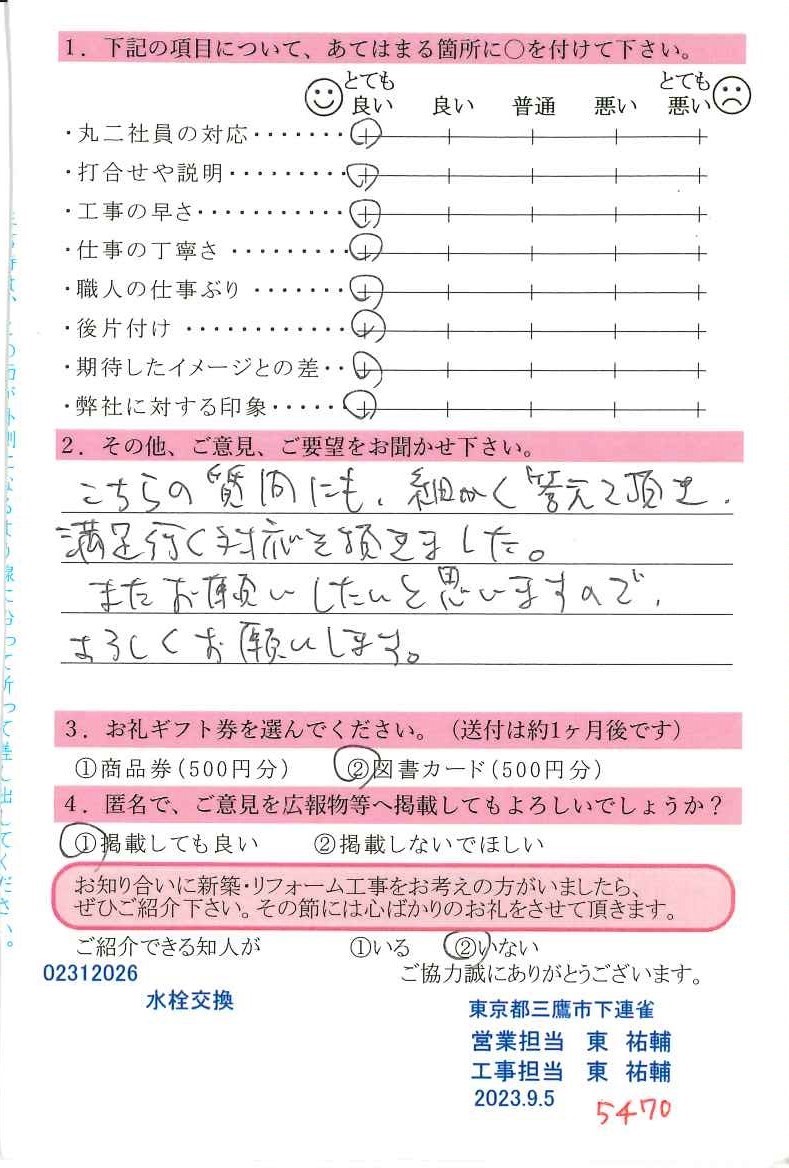 1．下記の項目について、あてはまる箇所に○を付けて下さい。
とても良い 良い 普通 悪い とても悪い
・丸二社員の対応・・・・・・・
・打合せや説明・・・・・・・・・
・工事の早さ・・・・・・・・・・・
・仕事の丁寧さ・・・・・・・・・
・職人の仕事ぶり・・・・・・・
・後片付け・・・・・・・・・・・・
・期待したイメージとの差・・
・弊社に対する印象・・・・・
2．その他、ご意見、ご要望をお聞かせ下さい。
こちらの質問にも、細かく答えて頂き、
満足行く対応を頂きました。
またお願いしたいと思いますので、
よろしくお願いします。
3．お礼ギフト券を選んでください。（送付は約1ヶ月後です）
①商品券（500円分） ②図書カード（500円分）
4．匿名で、ご意見を広報物等へ掲載してもよろしいでしょうか？
①掲載しても良い ②掲載しないでほしい
お知り合いに新築・リフォーム工事をお考えの方がいましたら、
ぜひご紹介下さい。その節には心ばかりのお礼をさせて頂きます。
ご紹介できる知人が ①いる ②いない
ご協力誠にありがとうございます。
02312026
水栓交換
東京都三鷹市下連雀
営業担当 東 祐輔
工事担当 東 祐輔
2023.9.5
5470